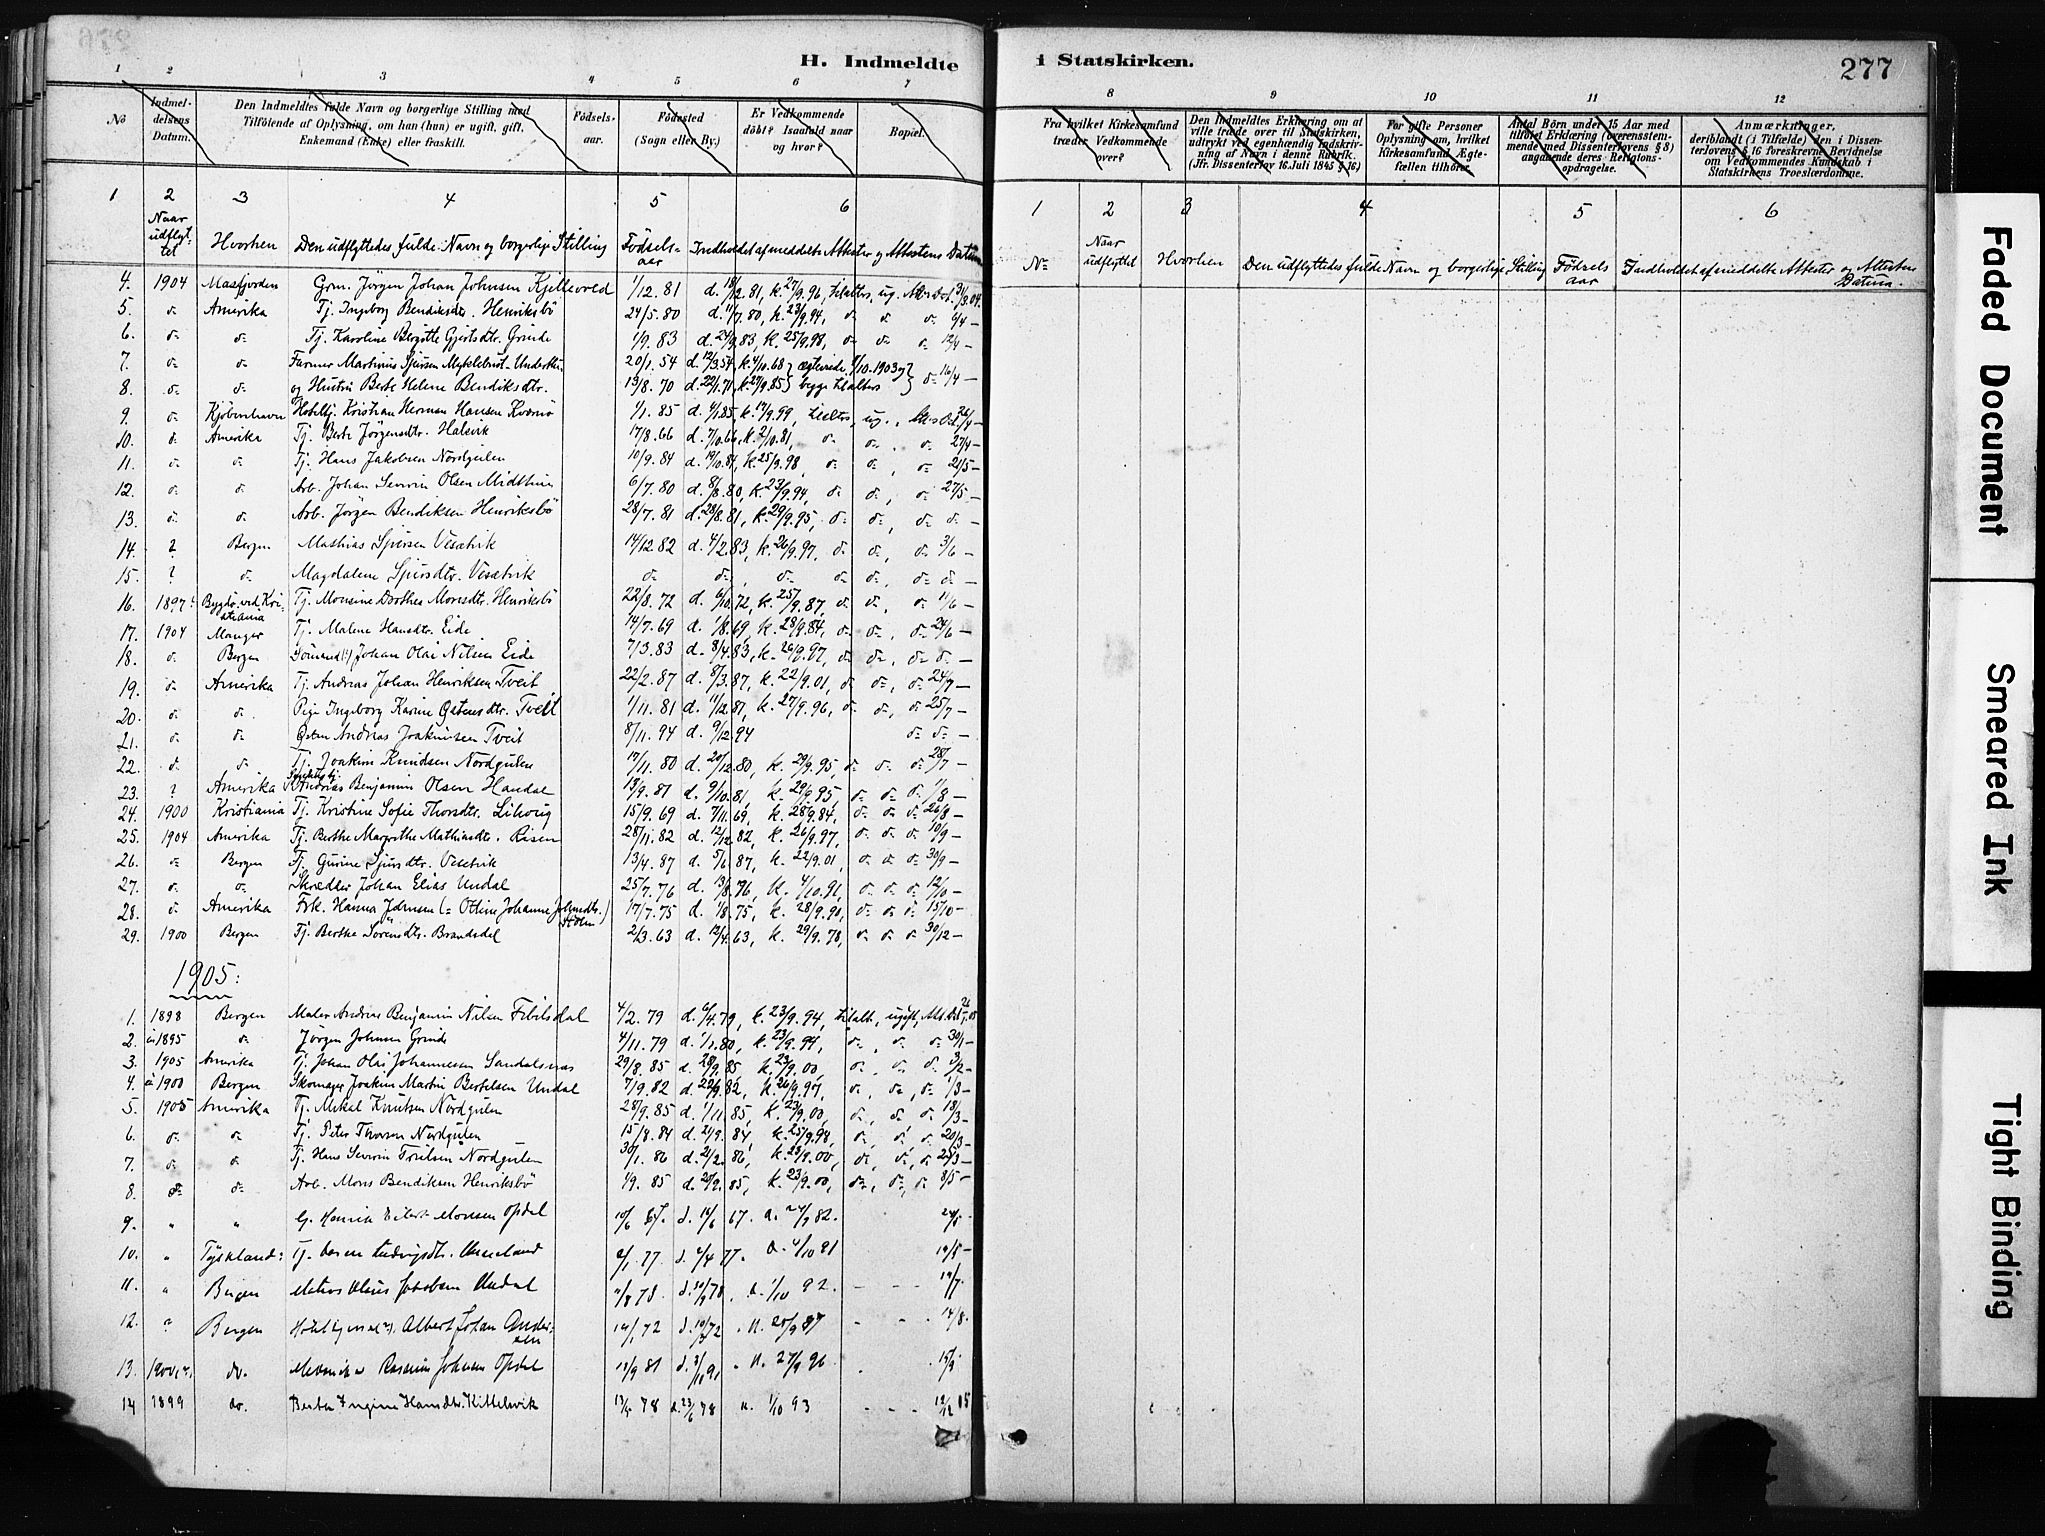 H. Indmeldte i Statskirken.
277
1 2 3 4 5 6 7 8 9 10 11 12
No
Indmel-
delsens
Datum.
Den Indmeldtes fulde Navn og borgerlige Stilling med
Tilföiende af Oplysning, om han (hun) er ugift, gift,
Enkemand (Enke) eller fraskilt.
Födsels-
aar.
Födested
(Sogn eller By.)
Er Vedkommende
döbt? Isaafald naar
og hvor?
Bopæl.
Fra hvilket Kirkesamfund
træder Vedkommende
over?
Den Indmeldtes Erklæring om at
ville træde over til Statskirken,
udtrykt ved egenhændig Indskriv-
ning af Navn i denne Rubrik.
(Jfr. Dissenterlov 16. Juli 1845 § 16)
For gifte Personer
Oplysning om, hvilket
Kirkesamfund Ægte-
fællen tilhörer.
Antal Börn under 15 Aar med
tilföiet Erklæring (overensstem-
mende med Dissenterlovens § 8)
angaaende deres Religions-
opdragelse.
Anmærkninger,
deriblandt (i Tilfælde) den i Dissen-
terlovens § 16 foreskrevne Bevidnelse
om Vedkommendes Kundskab i
Statskirkens Troeslærdomme.
1 2 3 4 5 6
Naar udflyt-tet Hvorhen Den udflyttedes fulde Navn og borgerlige Stilling Födsels-aar Indholdet af meddelte Attester og Attestens Datum
1 2 3 4 5 6
No Naar udflyttet Hvorhen Den udflyttedes fulde Navn og borgerlige Stilling Födsels aar Indholdet af meddelte Attester og Attestens Datum.
4. 1904 Masfjorden Grm. Jörgen Johan Johnsen Kjellevold 1/12. 81 d. 18/12. 81, k. 27/9. 96, tilalters, ug. 31/3. 04
5. d= Amerika Tj. Ingeborg Bendiksdtr. Henriksbö 24/5. 80 d. 11/7. 80, k. 23/9. 94, d= d= d= 6/4 –
6. d= d= Tj. Karoline Bergitte Gjertsdtr. Grinde 1/9. 83 d. 24/9. 83, k. 25/9. 98, d= d= d= 12/4 –
7. d= d= Farmer Martinus Sjursen Myklebust 20/1. 54 d. 12/3. 54, k. 4/10. 68
8. d= d= og Hustru Berte Helene Bendiksdtr. 13/8. 70 d. 22/1. 71, k. 27/9. 85 begge tilalters d= 16/4 –
9. d= Kjöbenhavn Kristian Herman Hansen Kversö 1/1. 85 d. 4/1. 85, k. 17/9. 99, ug.
10. d= Amerika Tj. Berte Jörgensdtr. Halsvik 17/8. 66 d. 7/10. 66, k. 2/10. 81, d= d= d= 27/4 –
11. d= d= Tj. Hans Jakobsen Nordgulen 10/9. 84 d. 19/10. 84, k. 25/9. 98, d= d= d= 21/5 –
12. d= d= Arb. Johan Severin Olsen Midttun 6/7. 80 d. 8/8. 80, k. 23/9. 94, d= d= d= 27/5 –
13. d= d= Arb. Jörgen Bendiksen Henriksbö 28/7. 81 d. 28/8. 81, k. 29/9. 95, d= d= d= d= –
14. ? Bergen Mathias Sjursen Vesetvik 14/12. 82 d. 4/2. 83, k. 26/9. 97, d= d= d= 3/6 –
15. ? d= Magdalene Sjursdtr. Vesetvik d= d= d= d= d= d= d= –
16. 1897 Bygdö ved Kristiania Tj. Monsine Dorthea Monsdtr. Henriksbö 22/8. 72 d. 6/10. 72, k. 25/9. 87, d= d= d= 11/6 –
17. 1904 Manger Tj. Malene Hansdtr. Eide 14/7. 69 d. 1/8. 69, k. 28/9. 84, d= d= d= 24/6 –
18. d= Bergen Johan Olai Nilsen Eide 7/3. 83 d. 8/4. 83, k. 26/9. 97, d= d= d= d= –
19. d= Amerika Tj. Andreas Johan Henriksen Tveit 22/2. 87 d. 8/3. 87, k. 22/9. 01, d= d= d= 24/7 –
20. d= d= Pige Ingeborg Karine Östensdtr. Tveit 1/11. 81 d. 11/12. 81, k. 27/9. 96, d= d= d= 25/7 –
21. d= d= Östen Andreas Joakimsen Tveit 8/11. 94 d. 9/12. 94 d= d= –
22. d= d= Tj. Joakim Knudsen Nordgulen 17/11. 80 d. 20/12. 80, k. 29/9. 95, d= d= d= 28/7 –
23. ? Amerika Andreas Benjamin Olsen Haudal 18/9. 81 d. 9/10. 81, k. 29/9. 95, d= d= d= 1/8 –
24. 1900 Kristiania Tj. Kristine Sofie Thorsdtr. Lihoug 15/9. 69 d. 7/11. 69, k. 28/9. 84, d= d= d= 26/8 –
25. 1904 Amerika Tj. Berthe Margrethe Mathiasdtr. Risen 28/11. 82 d. 12/12. 82, k. 26/9. 97, d= d= d= 10/9 –
26. d= Bergen Tj. Gurine Sjursdtr. Vesetvik 13/4. 87 d. 5/6. 87, k. 22/9. 01, d= d= d= 30/9 –
27. d= d= Skrædder Johan Elias Undal 25/7. 76 d. 13/8. 76, k. 4/10. 91, d= d= d= 12/10 –
28. d= Amerika Frk. Hanna Johnsen (= Ottine Johanne Johnsdtr. Holm) 17/7. 75 d. 1/8. 75, k. 28/9. 90, d= d= d= 15/10 –
29. 1900 Bergen Tj. Berthe Sörensdtr. Brandsdal 2/3. 63 d. 12/4. 63, k. 29/9. 78, d= d= d= 30/12 –
1905:
1. 1898 Bergen Maler Andreas Benjamin Nilsen Fibilsdal 4/2. 79 d. 6/4. 79, k. 23/9. 94, tilalt., ugift,
2. 1895 d= Jörgen Johnsen Grinde 4/11. 79 d. 1/1. 80, k. 23/9. 94, d= d= d= 30/1 –
3. 1905 Amerika Tj. Johan Olai Johannesen Sandalsnes 29/8. 85 d. 28/9. 85, k. 23/9. 00, d= d= d= 3/2 –
4. 1900 Bergen Skomager Joakim Martin Bertelsen Undal 7/9. 82 d. 22/9. 82, k. 26/9. 97, d= d= d= 1/3 –
5. 1905 Amerika Tj. Mikal Knutsen Nordgulen 28/9. 85 d. 1/11. 85, k. 23/9. 00, d= d= d= 18/3 –
6. d= d= Tj. Peter Thorsen Nordgulen 15/8. 84 d. 21/9. 84, k. 25/9. 98, d= d= d= 20/3 –
7. d= d= Tj. Hans Severin Nordgulen 30/1. 86 d. 21/2. 86, k. 23/9. 00, d= d= d= 25/3 –
8. d= d= Arb. Mons Bendiksen Henriksbö 1/9. 85 d. 20/9. 85, k. 23/9. 00, d= d= d= 8/5 –
9. " " G. Henrik Eilert Monsen Opdal 10/6 67 d. 16/6 67. k. 24/9 82. 24/5
10. " Tyskland: Tj. Ludvigsdtr. 2/1 77 d. 2/4 77. k. 4/10 91 19/5 –
11. " Bergen Matros Jakobsen Undal 4/8 78 d. k. 1/10 92. – – – 19/7.
12. " Bergen Albert Johan Andersen 14/1 72 d. k. 25/9 87 14/8.
13. 1900 do. Rasmus Johnsen Opdal 18/9 81 k. 27/9 96 15/9
14 1899 do. Berta Ingine Hansdtr. Kittelsvik 78 d. 23/6 78 k. 1/10 93 12/12 05
Faded Document
Smeared Ink
Tight Binding